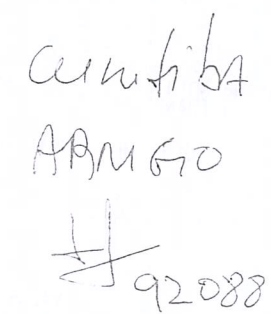 Curitiba
ARMGO
# 92088